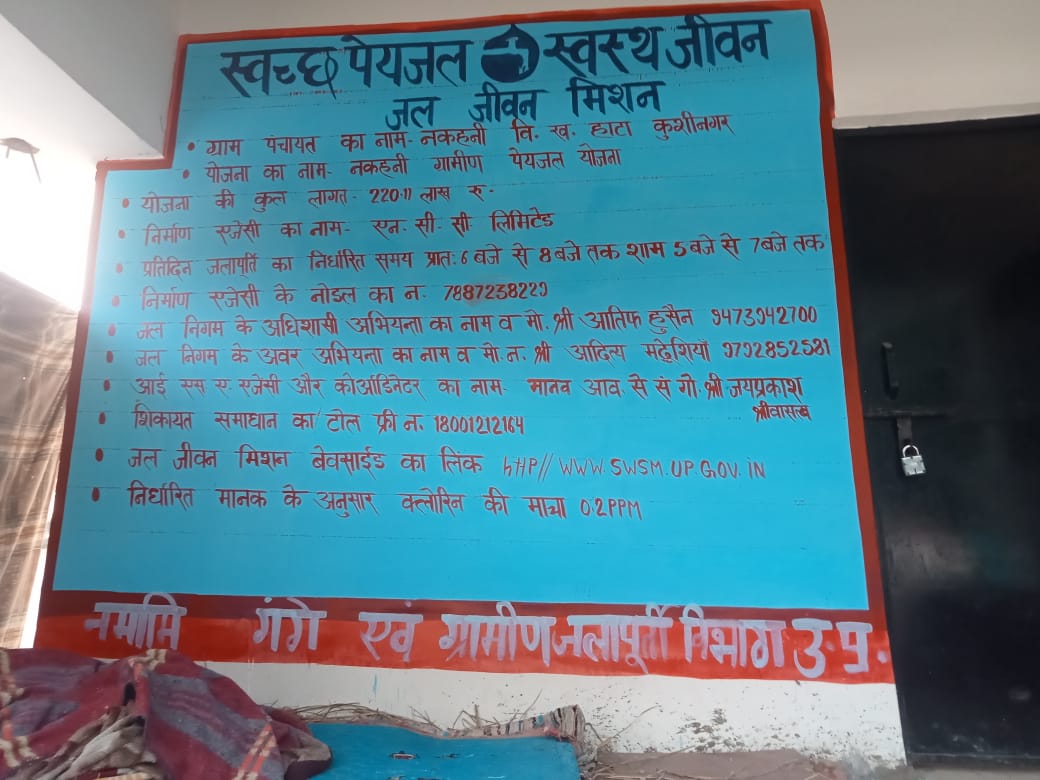 स्वच्छ पेयजल स्वस्थ जीवन
जल जीवन मिशन
• ग्राम पंचायत का नाम- नकहनी वि. ख. हाटा कुशीनगर
• योजना का नाम- नकहनी ग्रामीण पेयजल योजना
• योजना की कुल लागत- 220.11 लाख रु.
• निर्माण एजेंसी का नाम- एन. सी. सी. लिमिटेड
• प्रतिदिन जलापूर्ति का निर्धारित समय प्रातः 6 बजे से 8 बजे तक शाम 5 बजे से 7 बजे तक
• निर्माण एजेंसी के नोडल का न. 7887238229
• जल निगम के अधिशासी अभियन्ता का नाम व मो. श्री आतिफ हुसैन 9473942700
• जल निगम के अवर अभियन्ता का नाम व मो. न. श्री आदित्य मद्देशियाँ 9792852581
• आई एस ए. एजेंसी और कोऑडिनेटर का नाम- मानव आव. से सं गो. श्री जयप्रकाश
श्रीवास्तव
• शिकायत समाधान का टोल फ्री न. 18001212164
• जल जीवन मिशन बेवसाईड का लिंक http//WWW.SWSM.UP.GOV.IN
• निर्धारित मानक के अनुसार क्लोरिन की मात्रा 0.2PPM
नमामि गंगे एवं ग्रामीण जलापूर्ती विभाग उ.प्र.